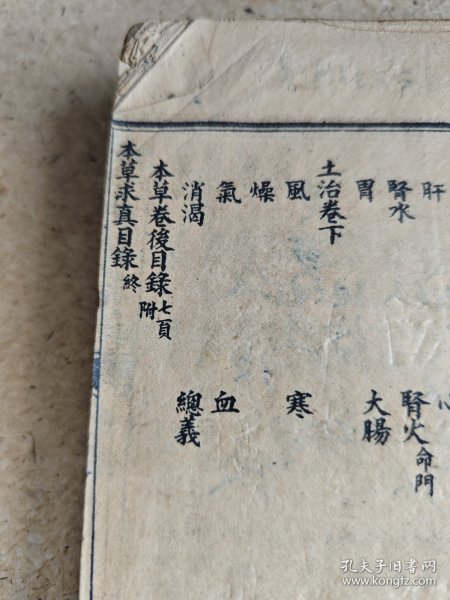 肝
腎水 腎火命門
胃 大腸
土治卷下
風 寒
燥
氣 血
消渴 總義
本草卷後目錄七頁附
本草求真目錄終
孔夫子旧书网
www.kongfz.com